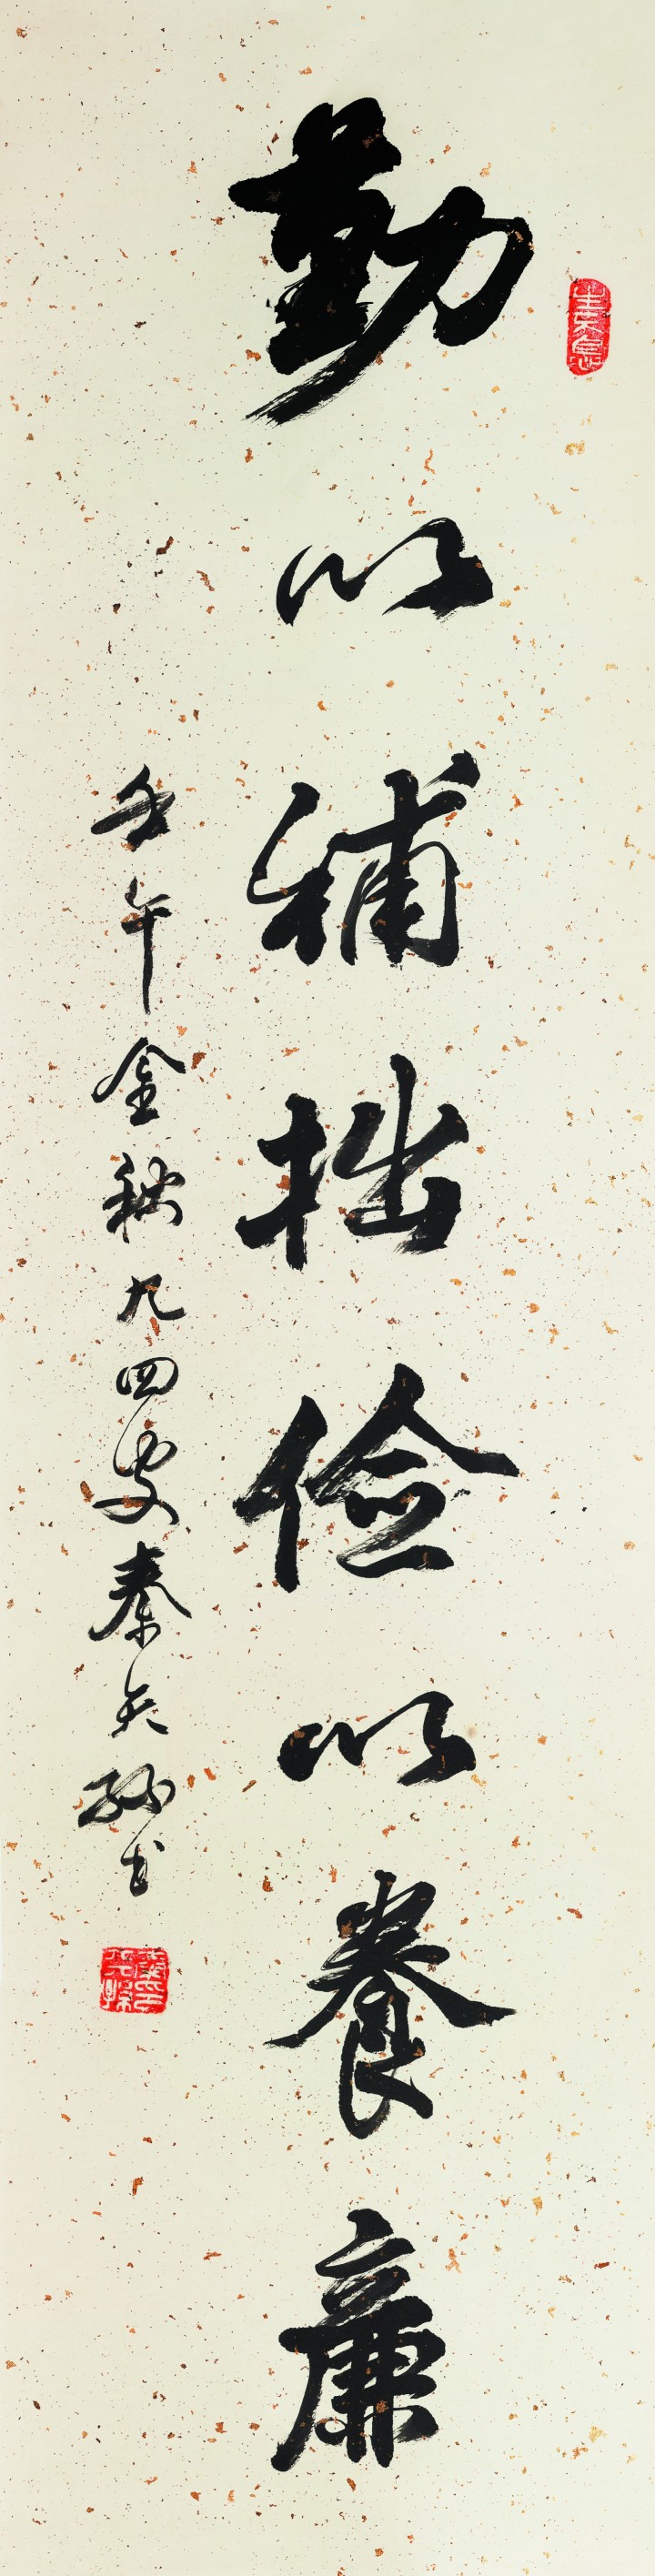 勤以補拙儉以養廉
壬午金秋九四叟秦天孫書